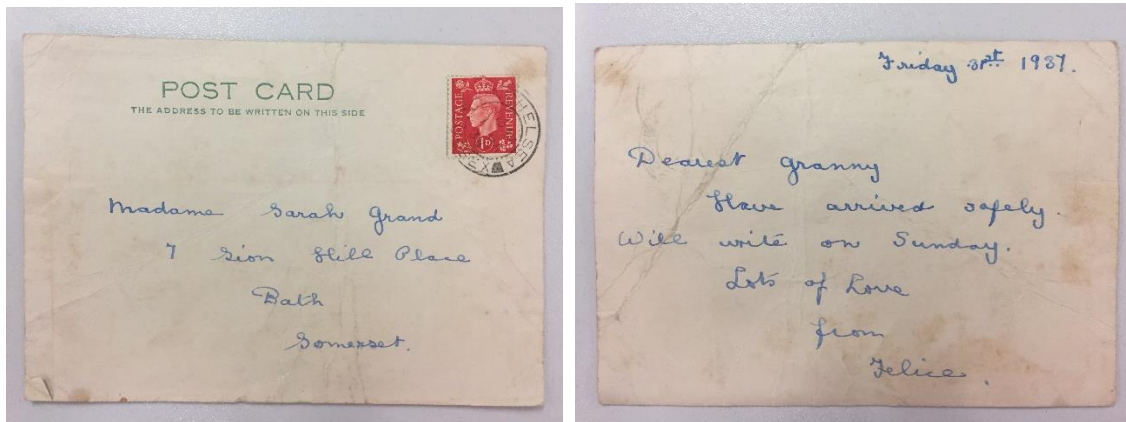 POST CARD
THE ADDRESS TO BE WRITTEN ON THIS SIDE
POSTAGE REVENUE
1D
CHELSEA
Madame Sarah Grand
7 Sion Hill Place
Bath
Somerset.
Friday 31st 1937.
Dearest Granny
Have arrived safely.
Will write on Sunday.
Lots of Love
from
Felice.